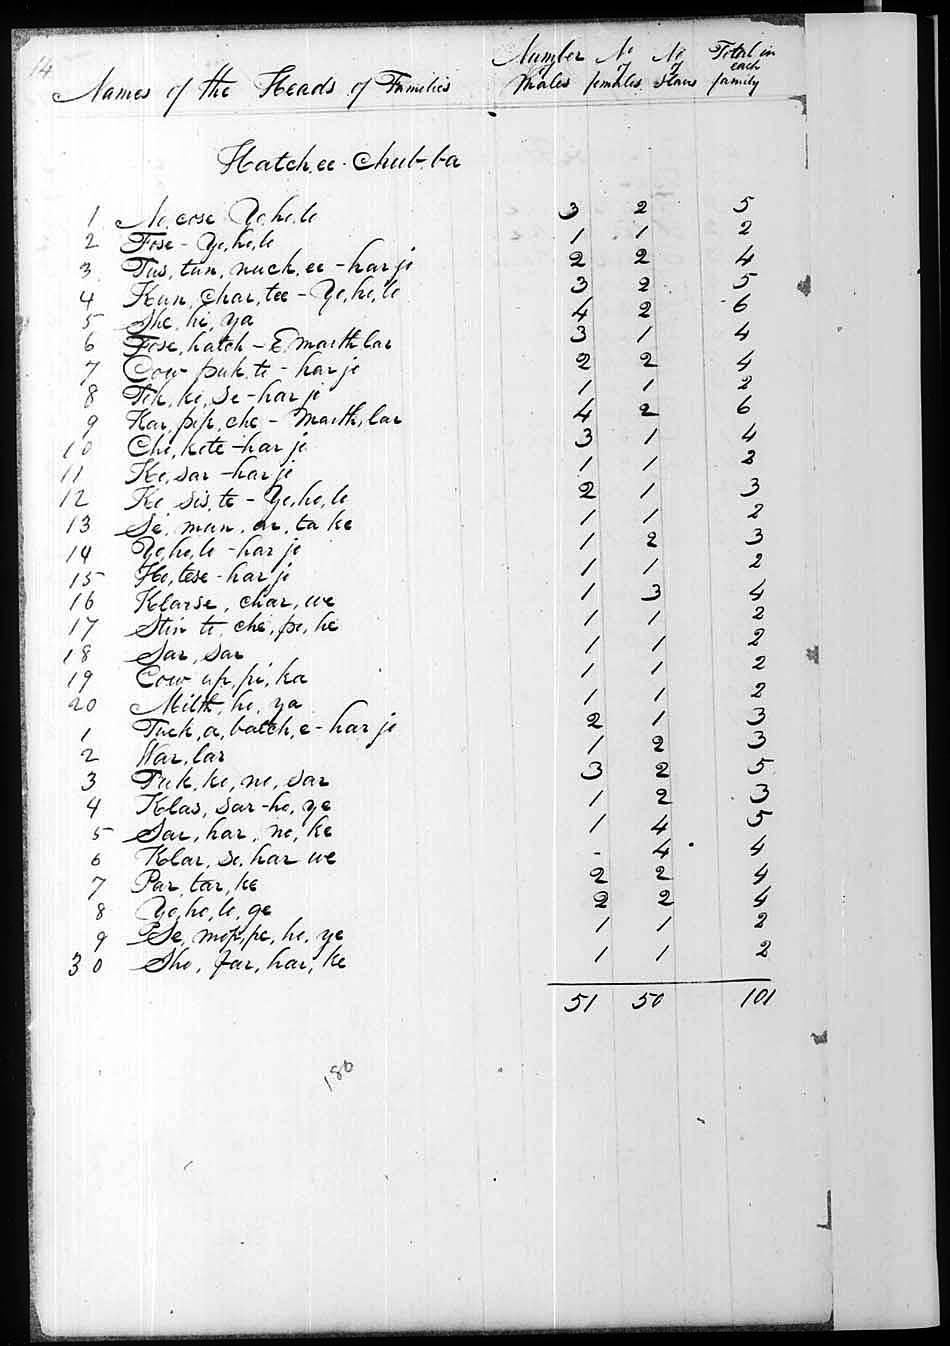 14
Names of the Heads of Families Number of Males No of females No of Slaves Total in each family
Hatch,ee-Chub-ba
1 No,cose Yo,ho,lo 3 2 5
2 Fose-Yo,ho,lo 1 1 2
3 Tus,tun,nuck,ee-harjo 2 2 4
4 Kun,char,tee-Yo,ho,lo 3 2 5
5 She,hi,ya 4 2 6
6 Fose,hatch-E,marth,lar 3 1 4
7 Cow puk,te-harjo 2 2 4
8 Tik,ke,se-harjo 1 1 2
9 Kar,pip,che-Marth,lar 4 2 6
10 Che,kote-harjo 3 1 4
11 Ko,sar-harjo 1 1 2
12 Ko sis,te-Yo,ho,lo 2 1 3
13 Se,mun,on,ta ke 1 1 2
14 Yo,ho,lo-harjo 1 2 3
15 Ho,tose-harjo 1 1 2
16 Klarse,char,we 1 3 4
17 Stin te,che,po,he 1 1 2
18 Sar,sar 1 1 2
19 Cow up,pi,ka 1 1 2
20 Milth,ho,ya 1 1 2
1 Tuck,a,batch,e-harjo 2 1 3
2 War,lar 1 2 3
3 Tuk,ke,no,sar 3 2 5
4 Klas,sar-ho,ye 1 2 3
5 Sar,har,no,ke 1 4 5
6 Klar,so,har we - 4 4
7 Par,tar,ke 2 2 4
8 Yo,ho,lo,ge 2 2 4
9 Se,mop,pe,ho,ye 1 1 2
30 Sho,far,har,ke 1 1 2
51 50 101
180